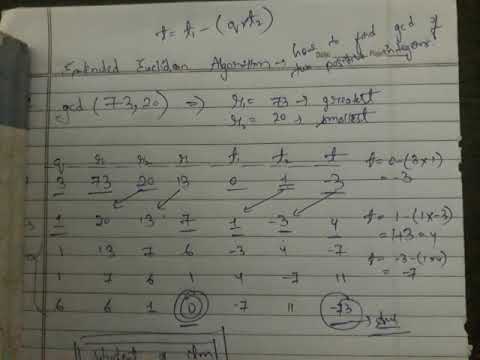 t = t₁ - (q × t₂)
Extended Euclidean Algorithm → how to find gcd of
two positive integers.
gcd (73, 20) ⇒ r₁ = 73 → greatest
r₂ = 20 → smallest
q r₁ r₂ r t₁ t₂ t
3 73 20 13 0 1 -3 t = 0 - (3 × 1)
= -3
1 20 13 7 1 -3 4 t = 1 - (1 × -3)
= 1+3 = 4
1 13 7 6 -3 4 -7 t = -3 - (1 × 4)
= -7
1 7 6 1 4 -7 11
6 6 1 0 -7 11 -73